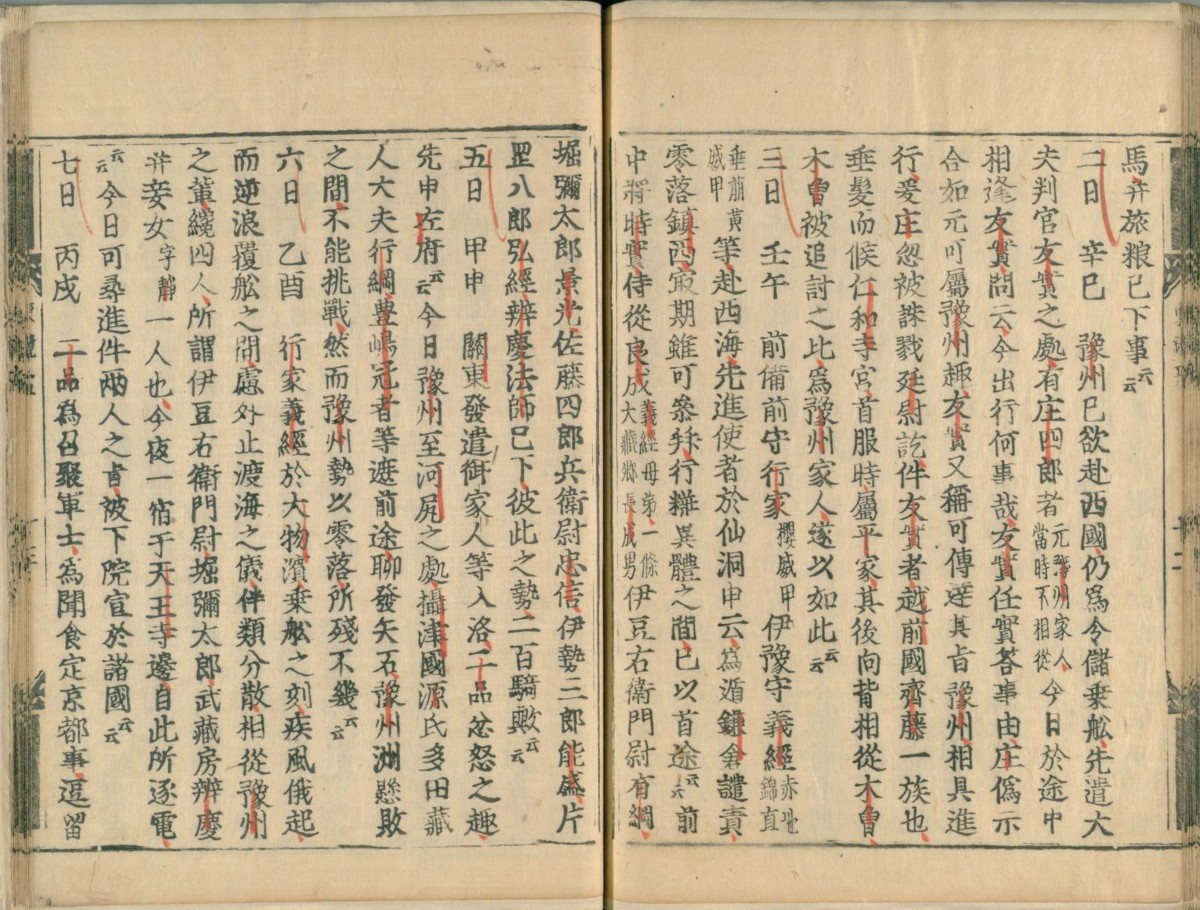 馬并旅粮已下事云云
二日　辛巳　豫州已欲赴西國仍爲令儲乗舩先遣大
夫判官友實之處有庄四郎者元豫州家人當時不相從今日於途中
相逢友實問云今出行何事哉友實任實答事由庄僞示
合如元可屬豫州趣友實又稱可傳達其旨豫州相具進
行爰庄忽被誅戮廷尉訖件友實者越前國齊藤一族也
垂髮而候仁和寺宮首服時屬平家其後向背相從木曽
木曽被追討之比爲豫州家人遂以如此云云
三日　壬午　前備前守行家櫻威甲伊豫守義經赤地錦直
垂萠黄威甲等赴西海先進使者於仙洞申云爲遁鎌倉譴責
零落鎮西寂期雖可叅拜行粧異體之間已以首途云云前
中將時實侍從良成義經母弟一條大藏卿長成男伊豆右衛門尉有綱
堀彌太郎景光佐藤四郎兵衛尉忠信伊勢三郎能盛片
罡八郎弘經辨慶法師已下彼此之勢二百騎歟云云
五日　甲申　關東發遣御家人等入洛二品忿怒之趣
先申左府云云今日豫州至河尻之處攝津國源氏多田藏
人大夫行綱豊嶋冠者等遮前途聊發矢石豫州洲懸敗
之間不能挑戰然而豫州勢以零落所殘不幾云云
六日　乙酉　行家義經於大物濱乗舩之刻疾風俄起
而逆浪覆舩之間慮外止渡海之儀伴類分散相從豫州
之輩纔四人所謂伊豆右衛門尉堀彌太郎武藏房辨慶
并妾女字靜一人也今夜一宿于天王寺邊自此所逐電
云云今日可尋進件兩人之旨被下院宣於諸國云云
七日　丙戌　二品爲召聚軍士爲聞食定京都事逗留